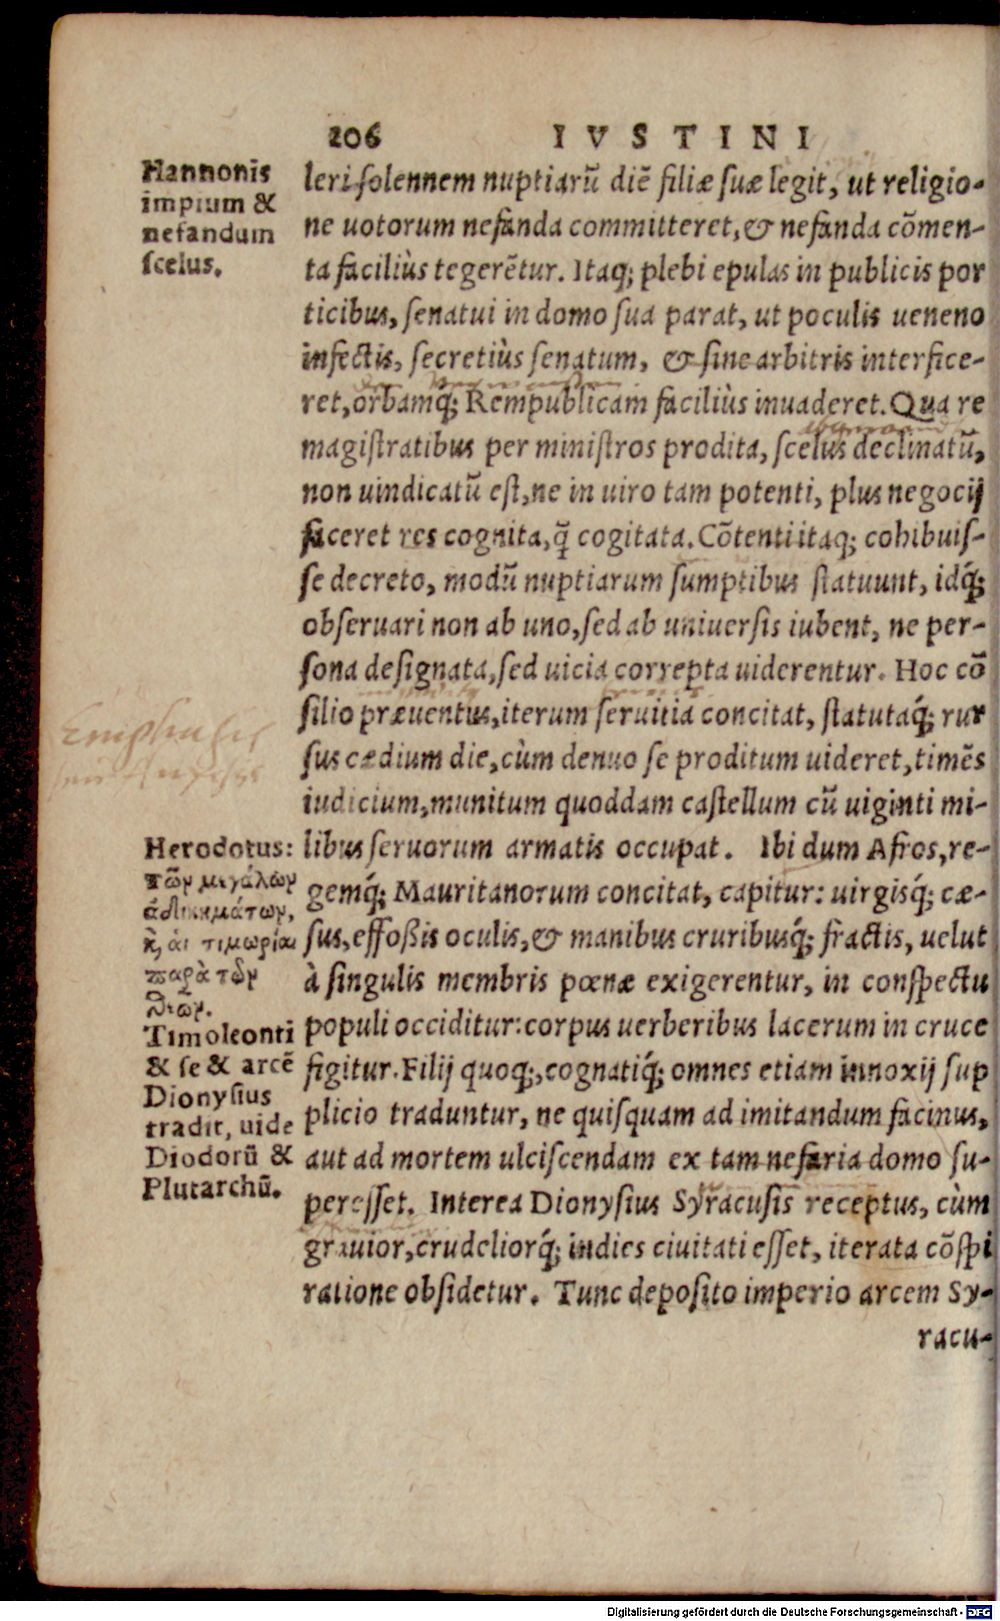 206 IVSTINI
Hannonis
impium &
nefandum
scelus.
leri solennem nuptiarũ diẽ filiæ suæ legit, ut religio-
ne uotorum nefanda committeret, & nefanda cõmen-
ta faciliùs tegerẽtur. Itaq; plebi epulas in publicis por
ticibus, senatui in domo sua parat, ut poculis ueneno
infectis, secretiùs senatum, & sine arbitris interfice-
ret, orbamq́; Rempublicam faciliùs inuaderet. Qua re
magistratibus per ministros prodita, scelus declinatũ,
non uindicatũ est, ne in uiro tam potenti, plus negocij
faceret res cognita, q̃ cogitata. Cõtenti itaq; cohibuis-
se decreto, modũ nuptiarum sumptibus statuunt, idq́;
obseruari non ab uno, sed ab uniuersis iubent, ne per-
sona designata, sed uicia correpta uiderentur. Hoc cõ
silio præuentus, iterum seruitia concitat, statutaq́; rur
sus cædium die, cùm denuo se proditum uideret, timẽs
iudicium, munitum quoddam castellum cũ uiginti mi-
libus seruorum armatis occupat. Ibi dum Afros, re-
gemq́; Mauritanorum concitat, capitur: uirgisq́; cæ-
sus, effoßis oculis, & manibus cruribusq́; fractis, uelut
à singulis membris pœnæ exigerentur, in conspectu
populi occiditur: corpus uerberibus lacerum in cruce
figitur. Filij quoq;, cognatiq́; omnes etiam innoxij sup
plicio traduntur, ne quisquam ad imitandum facinus,
aut ad mortem ulciscendam ex tam nefaria domo su-
peresset. Interea Dionysius Syracusis receptus, cùm
grauior, crudeliorq́; indies ciuitati esset, iterata cõspi
ratione obsidetur. Tunc deposito imperio arcem Sy-
racu-
Herodotus:
τῶν μεγάλων
ἀδικημάτων,
κ̀, αἱ τιμωρίαι
παρὰ τῶν
θεῶν.
Timoleonti
& se & arcẽ
Dionysius
tradit, uide
Diodorũ &
Plutarchũ.
Digitalisierung gefördert durch die Deutsche Forschungsgemeinschaft - DFG